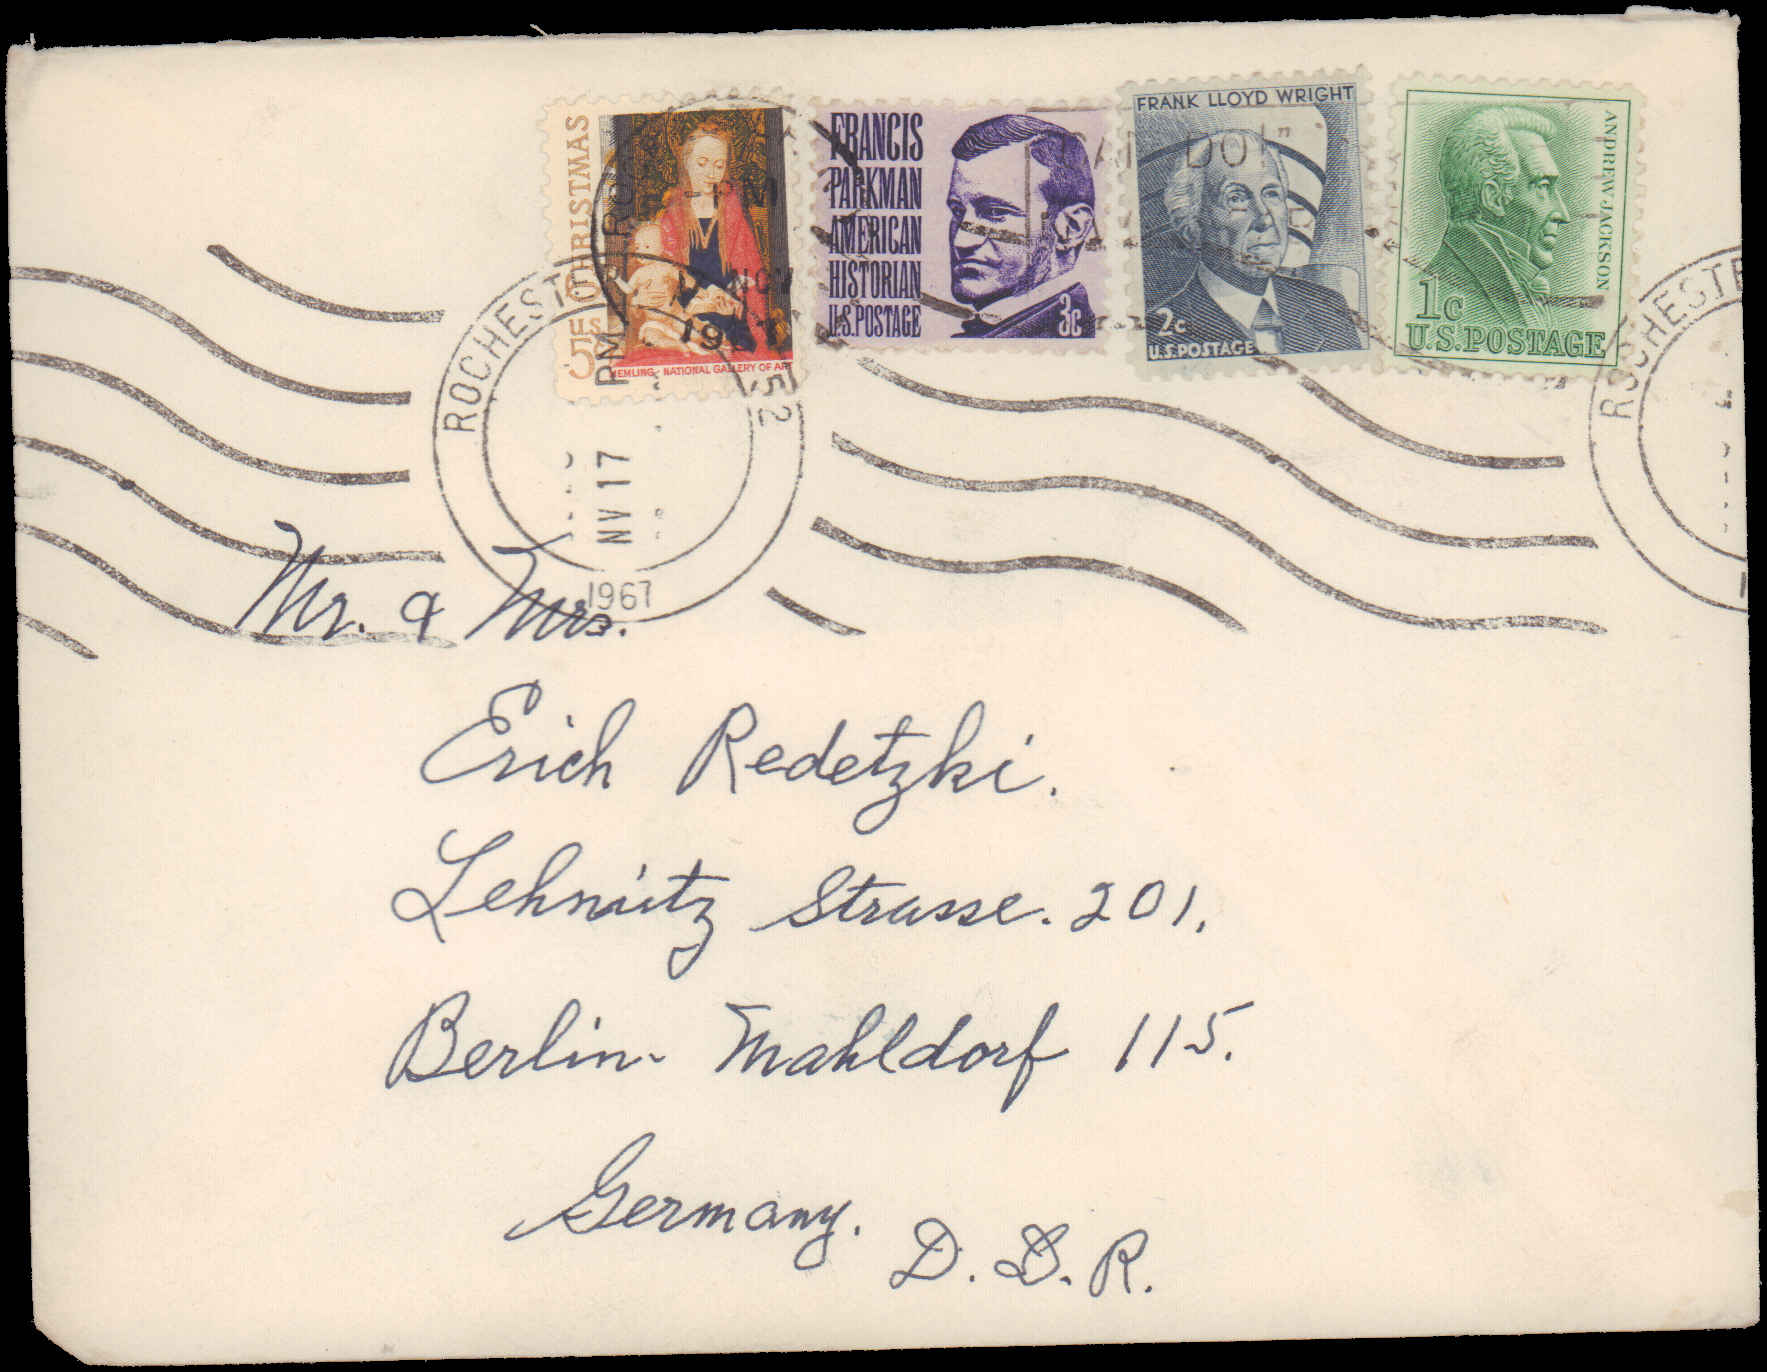 CHRISTMAS
5c U.S.
MEMLING: NATIONAL GALLERY OF ART
FRANCIS
PARKMAN
AMERICAN
HISTORIAN
U.S. POSTAGE
3c
FRANK LLOYD WRIGHT
2c
U.S. POSTAGE
ANDREW JACKSON
1c
U.S. POSTAGE
ROCHESTER
PM
NV 17
1967
ROCHESTER
Mr. & Mrs.
Erich Redetzki.
Lehnitz Strasse. 201.
Berlin- Mahldorf 115.
Germany.
D. D. R.